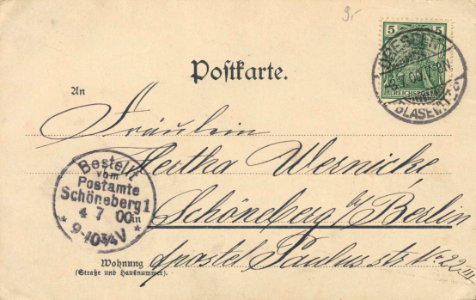 9.-
5 5
REICHSPOST
DRESDEN
BLASEWITZ
Postkarte.
An
Fräulein
Hertha Wernicke
in
Schöneberg b/Berlin
Apostel Paulus str. No. 22 III
Wohnung
(Straße und Hausnummer).
Bestellt
vom
Postamte
Schöneberg 1
4 7 00
* 9-10¾V *